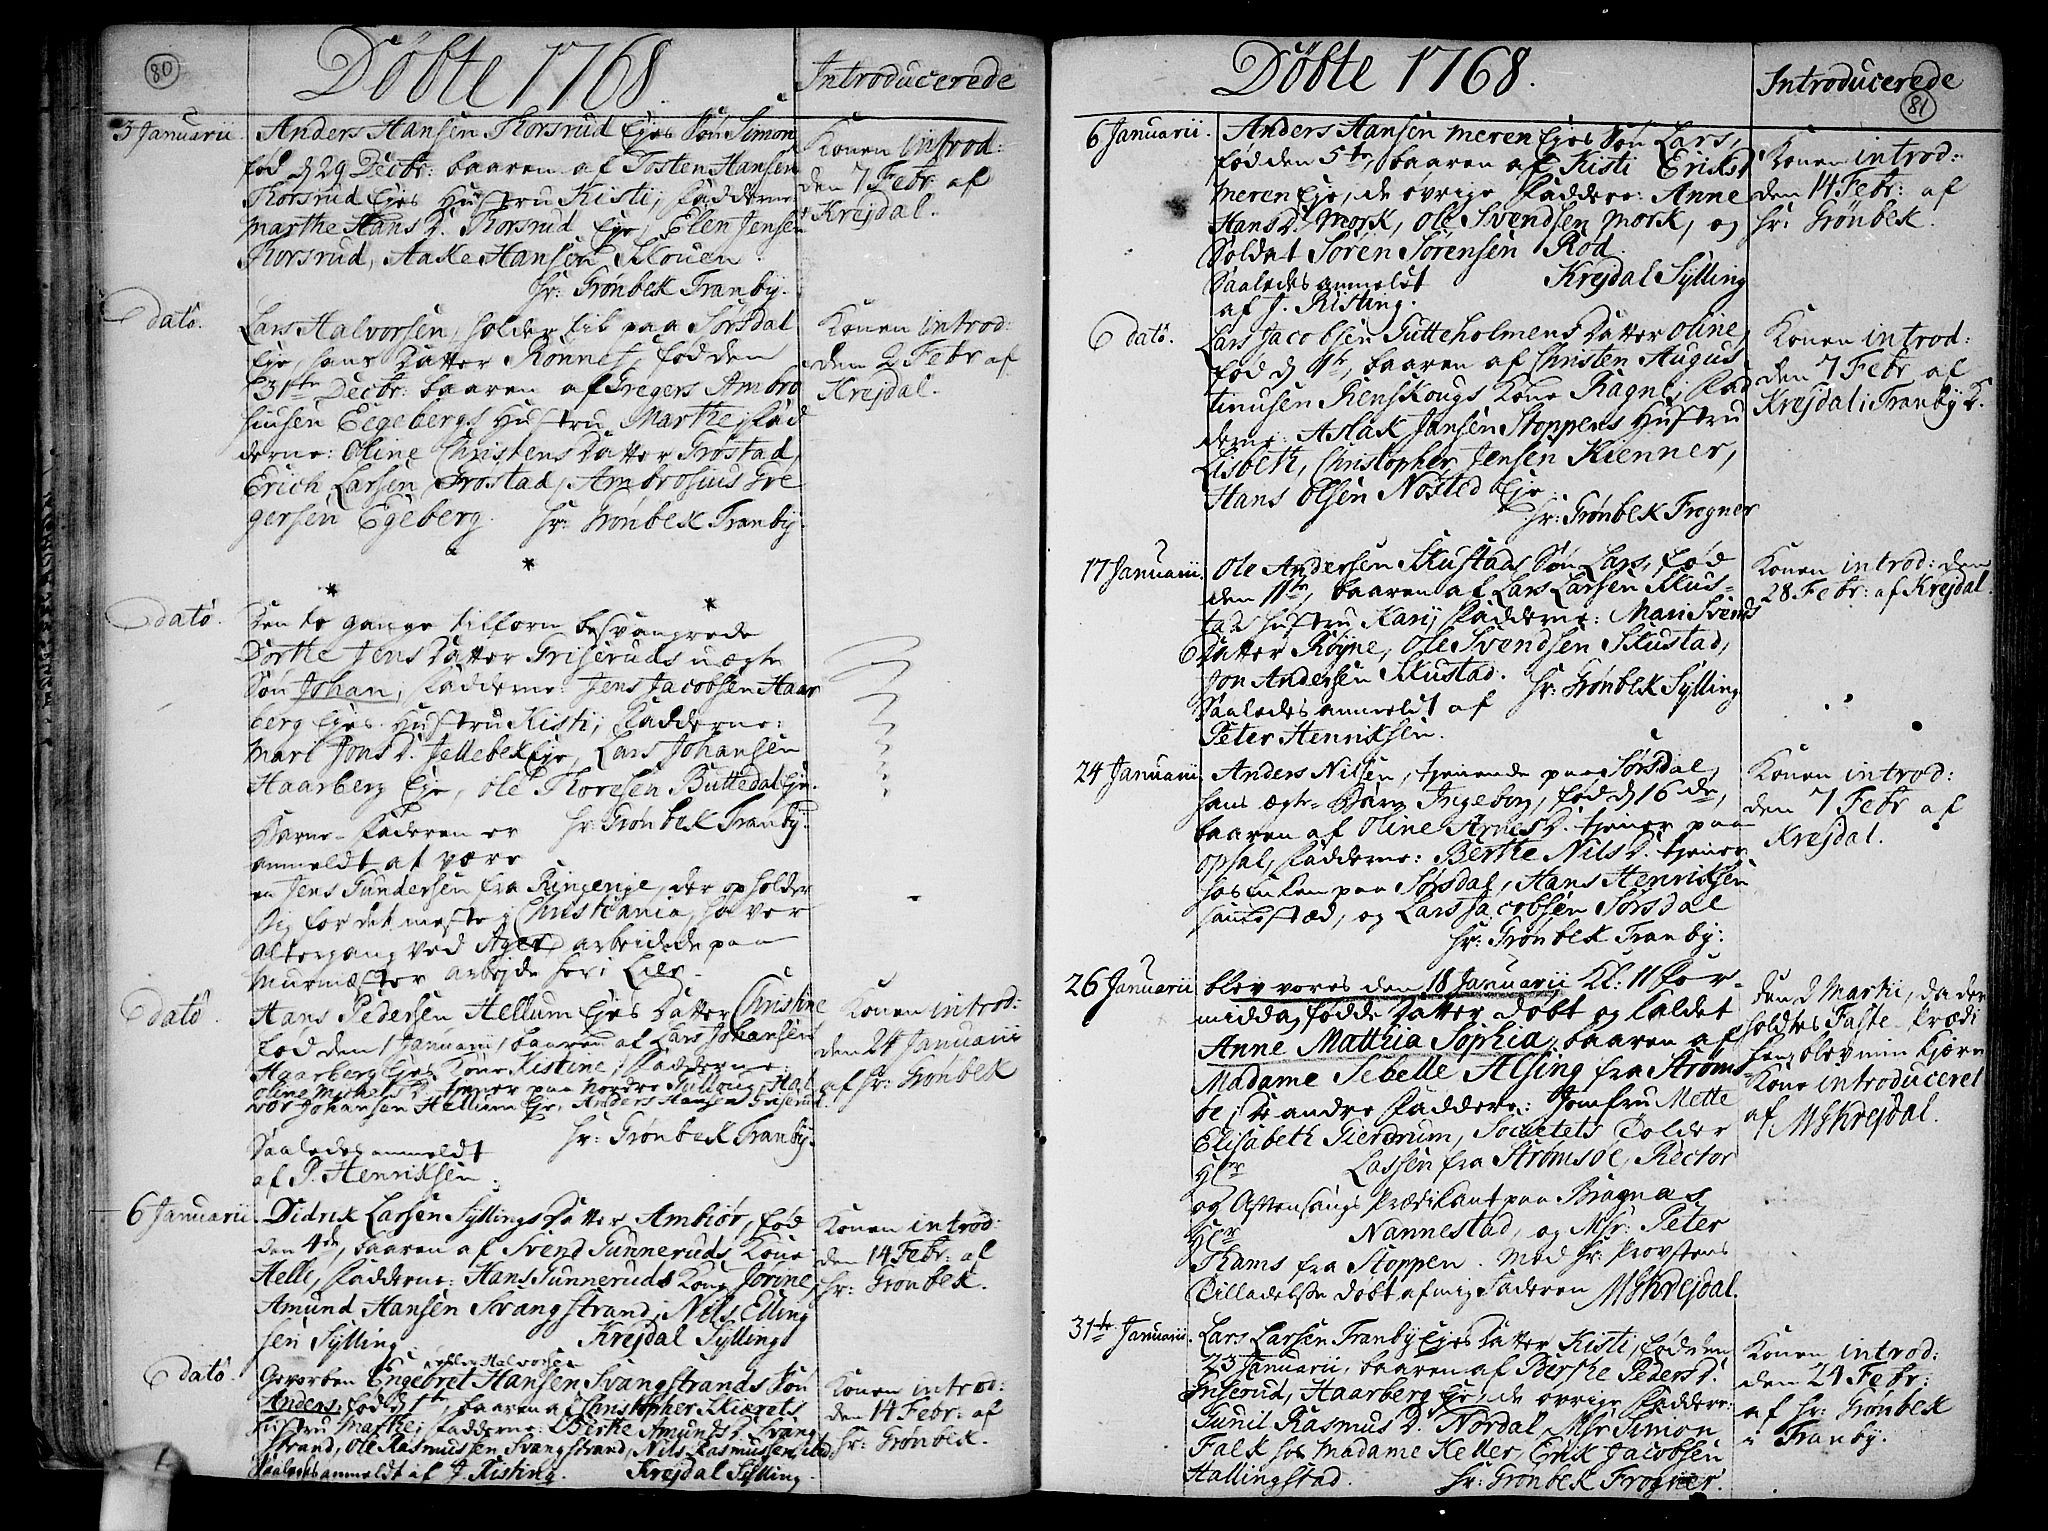 80
Døbte 1768.
Introducerede
3 Januarii.
Anders Hansen Thorsrud Ejes Søn Simon
fød d 29 Decbr: baaren af Tosten Hansen
Thorsrud Ejes Hustru Kisti, Fadderne:
Marthe Hans D. Thorsrud Eje, Elen Jensen
Thorsrud, Aake Hansen Skouen.
Hr: Grønbek Tranby.
Konen introd:
den 7 Febr af
Krejdal.
dato.
Lars Halvorsen, holder til paa Sørsdal
Eje, hans Datter Ronnef, fød den
31te Decbr: baaren af Gregers Ambro
siusen Eegebergs Hustru Marthe, Fad
derne: Oline Christens Datter Grostad,
Erich Larsen Grostad, Ambrosius Gre
gersen Egeberg. Hr: Grønbek Tranby.
Konen introd:
den 2 Febr af
Krejdal.
dato.
Den to gange tilforn besvangrede
Dorthe Jens Datter Griseruds uægte
Søn Johan, Fadderne: Jens Jacobsen Haar
berg Ejes Hustru Kisti, Fadderne:
Mari Jons D. Jellebek Eje, Lars Johansen
Haarberg Eje, Ole Thoresen Buttedal Eje.
Barne-Faderen er Hr: Grønbek Tranby.
anmeldt at være
en Jens Gundersen fra Ringerige, der opholder
sig for det meste i Christiania, haver
Altergang ved Ager arbeidede paa
Murmæster arbejde her i Lier.
dato.
Hans Pedersen Hellum Ejes Datter Christine
fød den 1 Januarii, baaren af Lars Johansen
Haarberg Ejes Kone Kistine, Fadderne:
Oline Michels D. tjener paa Nordre Gulloug, Hal
vor Johansen Hellum Eje, Anders Hansen Griserud.
Saaledes anmeldt Hr: Grønbek Tranby.
af P. Henriksen.
Konen introd:
den 24 Januarii
af Hr: Grønbek
6 Januarii.
Didrik Larsen Syllings Datter Ambiør, fød
den 4de, baaren af Svend Gunneruds Kone
Helli, Fadderne: Hans Gunneruds Kone Jørine,
Amund Hansen Svangstrand, Nils Elling
sen Sylling. Krejdal Sylling
Konen introd:
den 14 Febr: af
Hr: Grønbek.
dato.
eller Halvorsen
Gevorben Engebret Hansen Svangstrands Søn
Anders, fød d 1te, baaren af Christopher Skierets
Hustru Marthe, Fadderne: Berthe Amunds D. Svang
strand, Ole Rasmussen Svangstrand, Nils Rasmussen ibid
Saaledes anmeldt af J. Risting. Krejdal Sylling.
Konen introd:
den 14 Febr: af
Hr: Grønbek.
Døbte 1768.
Introducerede
81
6 Januarii.
Anders Hansen Meren Ejes Søn Lars,
fød den 5te, baaren af Kisti Eriks D
Meren Eje, de øvrige Faddere: Anne
Hans D. Mork, Ole Svendsen Mork, og
Soldat Søren Sørensen Rød.
Saaledes anmeldt Krejdal Sylling
af J. Risting.
Konen introd:
den 14 Febr: af
Hr: Grønbek.
dato.
Lars Jacobsen Gutteholmens Datter Oline,
fød d 1te, baaren af Christen Augus
tinusen Renskougs Kone Ragne, Fad
derne: Aslak Jansen Stoppens Hustru
Lisbeth, Christopher Jensen Kienner,
Hans Olsen Nøsted Eje.
Hr: Grønbek Frogner
Konen introd:
den 7 Febr af
Krejdal i Tranby K.
17 Januarii.
Ole Andersen Skustads Søn Lars, fød
den 11te, baaren af Lars Larsen Skus-
tads Hustru Kari, Fadderne: Mari Svends
Datter Røyne, Ole Svendsen Skustad,
Jon Andersen Skustad. Hr: Grønbek Sylling
Saaledes anmeldt af
Peter Henriksen.
Konen introd: den
28 Febr: af Krejdal.
24 Januarii
Anders Nilsen, tjenende paa Sørsdal,
hans ægte-Barn Ingeborg, fød d 16de,
baaren af Oline Arnes D. tjener paa
Opsal, Fadderne: Berthe Nils D. tjener
hos Enken paa Sørsdal, Hans Henriksen
sammested, og Lars Jacobsen Sørsdal
Hr: Grønbek Tranby.
Konen introd:
den 7 Febr af
Krejdal.
26 Januarii
blev vores den 18 Januarii Kl: 11 For-
middag fødde Datter døbt og kaldet
Anne Matthia Sophia, baaren af
Madame Sebelle Alsing fra Strøms-
øe, De andre Faddere: Jomfru Mette
Elisabeth Gierdrum, Societets Tolder
Hr Lassen fra Strømsøe, Rector
og Aftensangs Prædikant paa Bragnæs
Hr Nannestad, og Msr: Peter
Thams fra Stoppen. Med Hr: Provstens
Tilladelse døbt af mig Faderen MSKrejdal.
Den 2 Martii, da der
holdtes Faste-Prædi
ken, blev min kjære
Kone introduceret
af MSKrejdal.
31te Januarii.
Lars Larsen Tranby Ejes Datter Kisti, fød den
23 Januarii, baaren af Berthe Peders D.
Griserud, Haarberg Eje, de øvrige Faddere:
Gunil Rasmus D. Nordal, Msr Simon
Falk hos Madame Keller, Erik Jacobsen
Hallingstad. Hr: Grønbek Frogner.
Konen introd:
den 24 Febr:
af Hr: Grønbek
i Tranby.